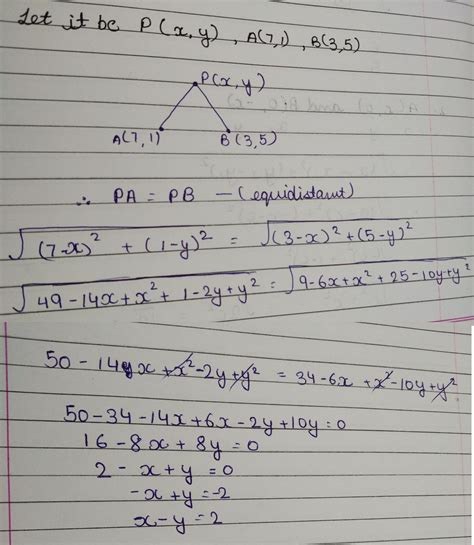 Let it be P(x,y), A(7,1), B(3,5)
P(x,y)
A(7,1) B(3,5)
∴ PA = PB — (equidistant)
√((7-x)² + (1-y)²) = √((3-x)² + (5-y)²)
√(49-14x+x²+1-2y+y²) = √(9-6x+x²+25-10y+y²)
50-14x+x²-2y+y² = 34-6x+x²-10y+y²
50-34-14x+6x-2y+10y=0
16-8x+8y=0
2-x+y=0
-x+y=-2
x-y=2